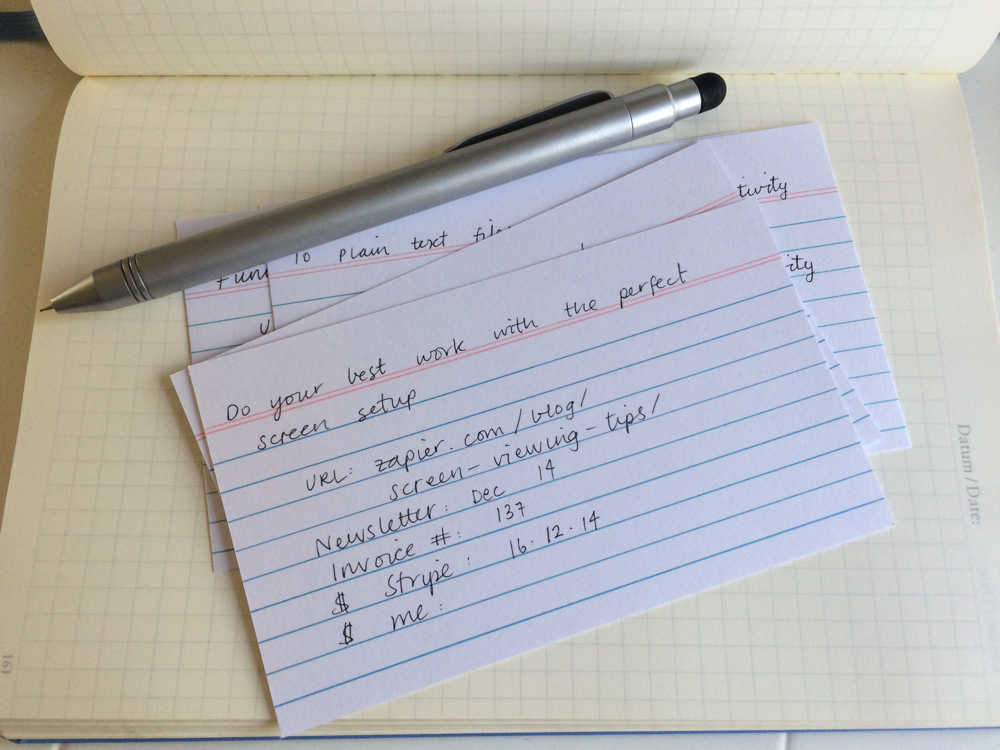 tivity
10 Plain text
ity
Do your best work with the perfect
screen setup
URL: zapier.com/blog/
screen-viewing-tips/
Newsletter: Dec 14
Invoice #: 137
$ Stripe: 16.12.14
$ me:
Datum/Date:
161